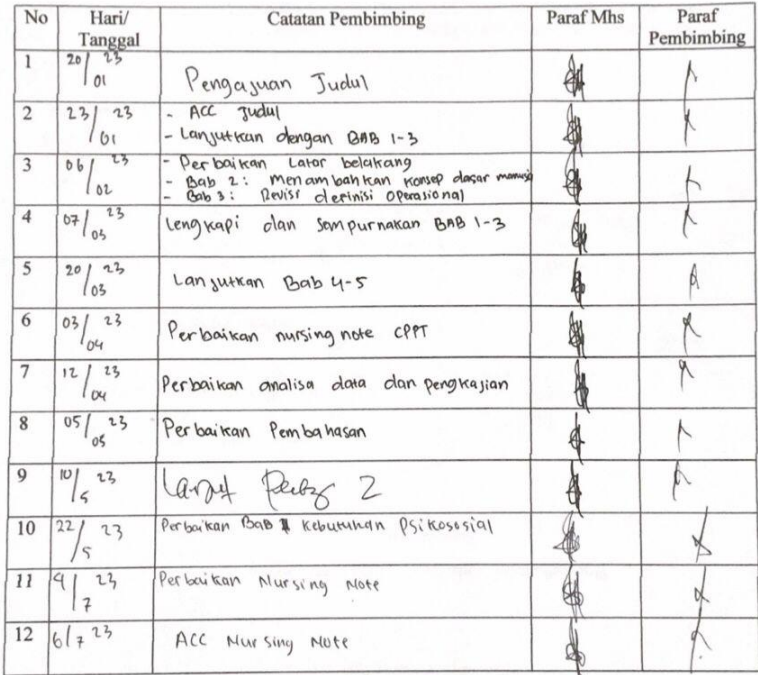 No Hari/ Tanggal Catatan Pembimbing Paraf Mhs Paraf Pembimbing
1 20/01 23 Pengajuan Judul
2 23/01 23 - ACC Judul
- Lanjutkan dengan BAB 1-3
3 06/02 23 - Perbaikan Lator belakang
- Bab 2: Menambahkan konsep dasar manusia
- Bab 3: Revisi definisi Operasional
4 07/03 23 Lengkapi dan Sempurnakan BAB 1-3
5 20/03 23 Lanjutkan Bab 4-5
6 03/04 23 Perbaikan nursing note CPPT
7 12/04 23 Perbaikan analisa data dan pengkajian
8 05/05 23 Perbaikan Pembahasan
9 10/5 23 Lanjut 2
10 22/5 23 Perbaikan BAB Kebutuhan Psikososial
11 4/7 23 Perbaikan Nursing Note
12 6/7 23 ACC Nursing Note